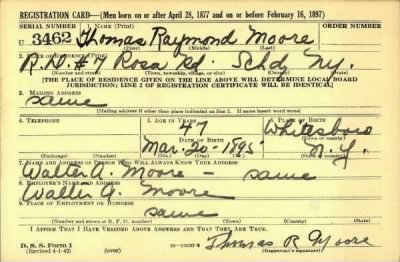 REGISTRATION CARD—(Men born on or after April 28, 1877 and on or before February 16, 1897)
SERIAL NUMBER 1. NAME (Print) ORDER NUMBER
U 3462 Thomas Raymond Moore
(First) (Middle) (Last)
2. PLACE OF RESIDENCE (Print)
R.D. #7 Rosa Rd. Schd N.Y.
(Number and street) (Town, township, village, or city) (County) (State)
[THE PLACE OF RESIDENCE GIVEN ON THE LINE ABOVE WILL DETERMINE LOCAL BOARD
JURISDICTION; LINE 2 OF REGISTRATION CERTIFICATE WILL BE IDENTICAL]
3. MAILING ADDRESS
same
(Mailing address if other than place indicated on line 2. If same insert word same)
4. TELEPHONE 5. AGE IN YEARS 6. PLACE OF BIRTH
47 Whitesboro
DATE OF BIRTH (Town or county)
Mar. 20 - 1895 N.Y.
(Exchange) (Number) (Mo.) (Day) (Yr.) (State or country)
7. NAME AND ADDRESS OF PERSON WHO WILL ALWAYS KNOW YOUR ADDRESS
Walter A. Moore - same
8. EMPLOYER'S NAME AND ADDRESS
Walter A. Moore
9. PLACE OF EMPLOYMENT OR BUSINESS
same
(Number and street or R. F. D. number) (Town) (County) (State)
I AFFIRM THAT I HAVE VERIFIED ABOVE ANSWERS AND THAT THEY ARE TRUE.
D. S. S. Form 1
(Revised 4-1-42) (over) Thomas R Moore
(Registrant's signature)